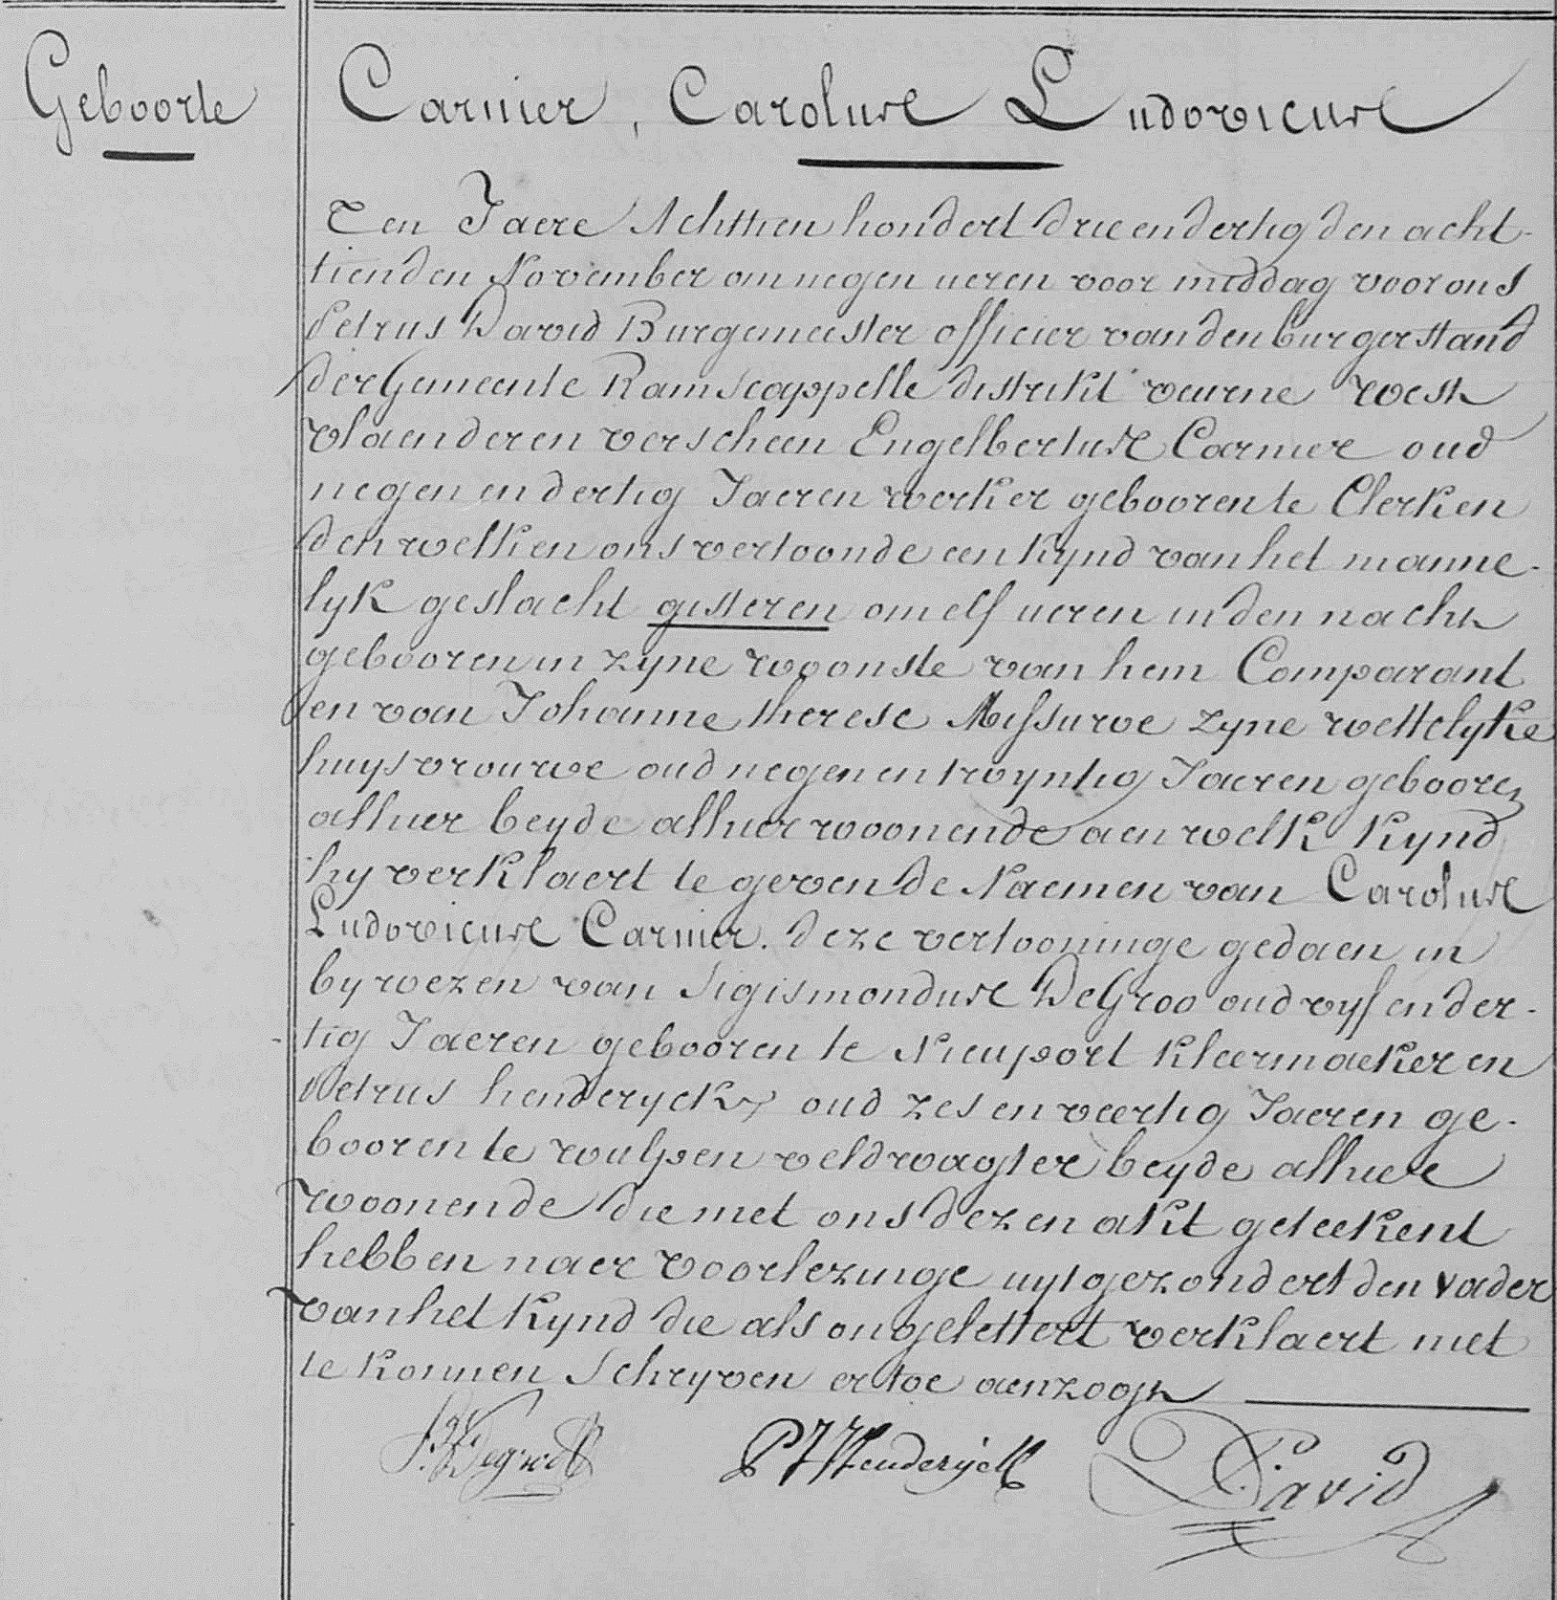 Geboorte
Carnier, Carolus Ludovicus
Ten Jaere Achttien hondert drie en dertig den acht-
tienden November om negen ueren voor middag voor ons
Petrus David Burgemeester officier van den burgerstand
der Gemeente Ramscappelle distrikt veurne West
vlaenderen verscheen Engelbertus Carnier oud
negen en dertig Jaeren werker gebooren te Clerken
den welken ons vertoonde een kynd van het manne-
lyk geslacht gisteren om elf ueren in den nacht
gebooren in zyne woonste van hem Comparant
en van Johanne therese Missuwe zyne wettelyke
huysvrouwe oud negen en twyntig Jaeren gebooren
alhier beyde alhier woonende aen welk kynd
hy verklaert te geven de Naemen van Carolus
Ludovicus Carnier. deze vertooninge gedaen in
bywezen van Sigismondus DeGroo oud vyf en der-
tig Jaeren gebooren te Nieuport kleermaeker en
Petrus henderyckx oud zes en veertig Jaeren ge-
booren te wulpen veldwagter beyde alhier
woonende die met ons dezen akt geteekent
hebben naer voorlezinge uytgezondert den vader
van het kynd die als ongelettert verklaert niet
te konnen schryven er toe aenzogt
David